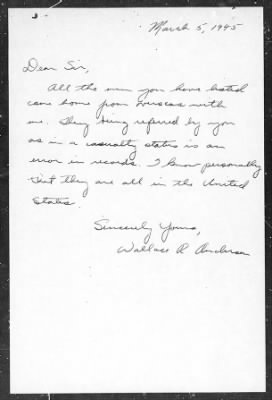 March 5, 1945
Dear Sir,
All the men you have listed
came home from overseas with
me. They being referred by you
as in a casualty status is an
error in records. I know personally
that they are all in the United
States.
Sincerely Yours,
Wallace R Anderson